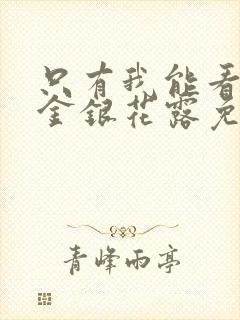 只有我能看
金银花露免
青峰雨亭